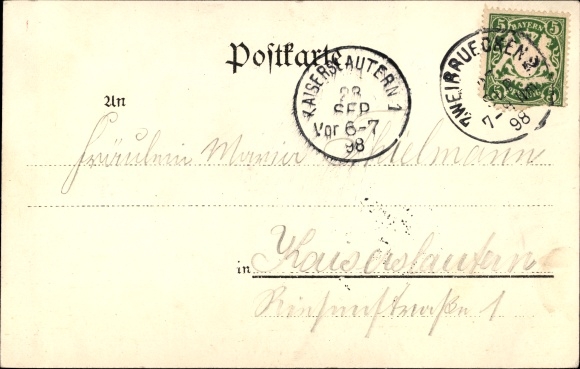 5 BAYERN 5
5 5
ZWEIBRUECKEN
7-
98
Postkarte
KAISERSLAUTERN 1
28
SEP
Vor 6-7
98
An
Fräulein Maria Thielmann
in Kaiserslautern
Riesenstraße 1